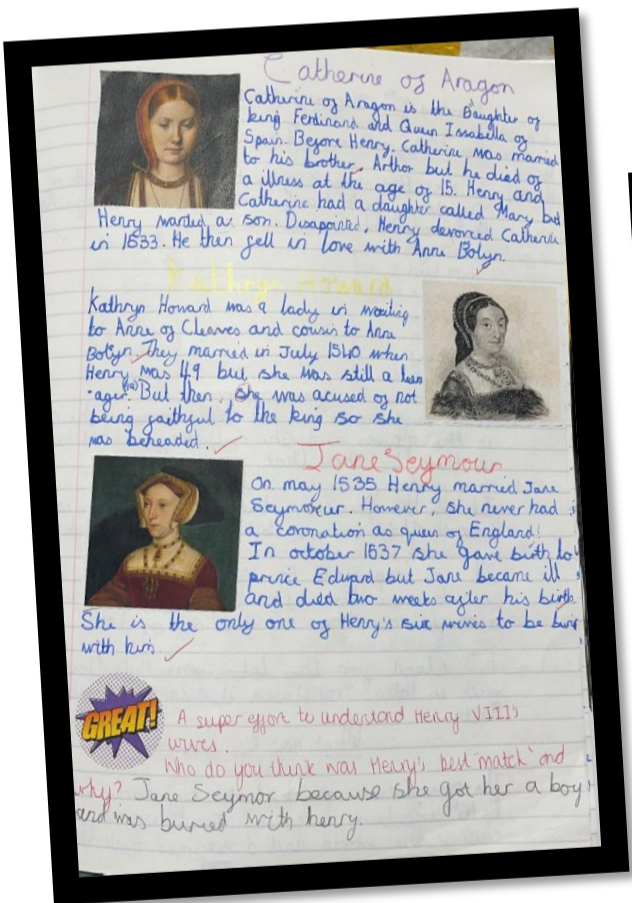 Catherine of Aragon
Catherine of Aragon is the Daughter of
king Ferdinand and Queen Issabella of
Spain. Before Henry, Catherine was married
to his brother, Arthor but he died of
a illness at the age of 15. Henry and
Catherine had a daughter called Mary but
Henry wanted a son. Disapointed, Henry devorced Catherine
in 1533. He then fell in love with Anne Bolyn.
Kathryn Howard
Kathryn Howard was a lady in waiting
to Anne of Cleaves and cousin to Anne
Bolyn. They married in July 1540 when
Henry was 49 but she was still a teen
-ager. But then, she was acused of not
being faithful to the king so she
was beheaded.
Jane Seymour
On may 1535 Henry married Jane
Seymour. However, she never had
a coronation as queen of England!
In october 1537 she gave birth to
prince Edward but Jane became ill
and died two weeks after his birth.
She is the only one of Henry's six wives to be
with him.
GREAT!
A super effort to understand Henry VIII's
wives.
Who do you think was Henry's best 'match' and
why? Jane Seymor because she got her a boy
and was buried with henry.